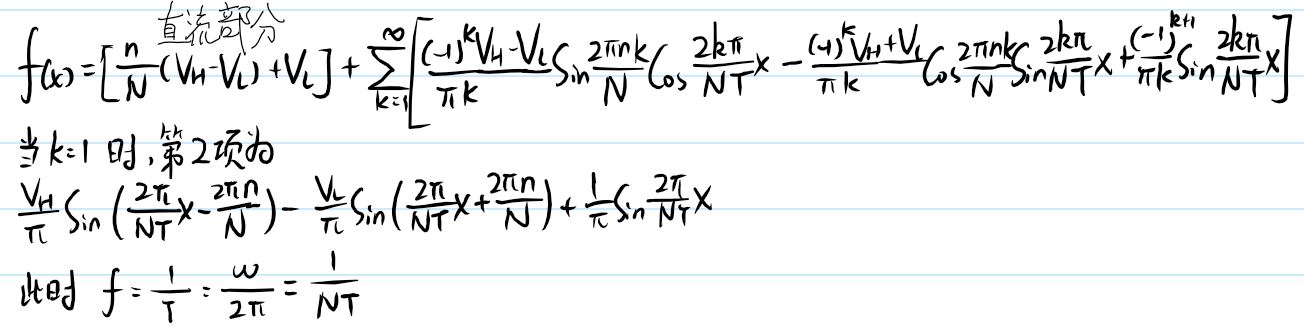 直流部分
f(x)=[n/N(V_H-V_L)+V_L]+∑_{k=1}^{∞}[((-1)^k V_H-V_L)/(πk) Sin 2πnk/N Cos 2kπ/NT x - ((-1)^k V_H+V_L)/(πk) Cos 2πnk/N Sin 2kπ/NT x + (-1)^{k+1}/(πk) Sin 2kπ/NT x]
当k=1时,第2项为
V_H/π Sin(2π/NT x - 2πn/N) - V_L/π Sin(2π/NT x + 2πn/N) + 1/π Sin 2π/NT x
此时 f = 1/T = ω/2π = 1/NT